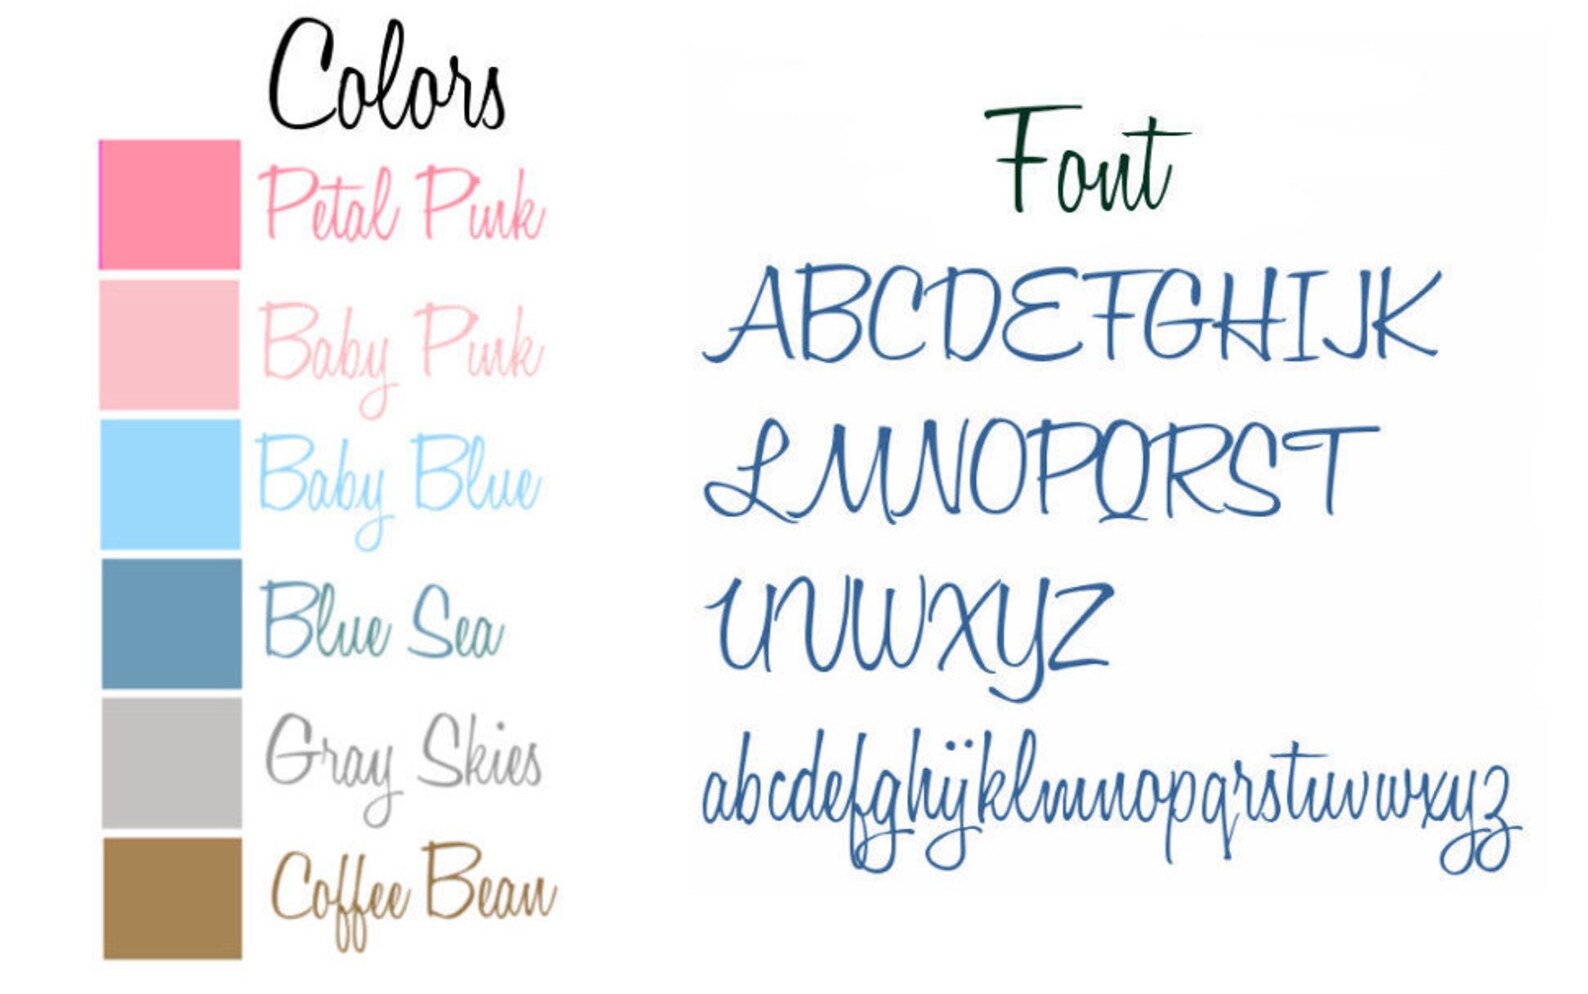 Colors
Petal Pink
Baby Pink
Baby Blue
Blue Sea
Gray Skies
Coffee Bean
Font
ABCDEFGHIJK
LMNOPQRST
UVWXYZ
abcdefghijklmnopqrstuvwxyz